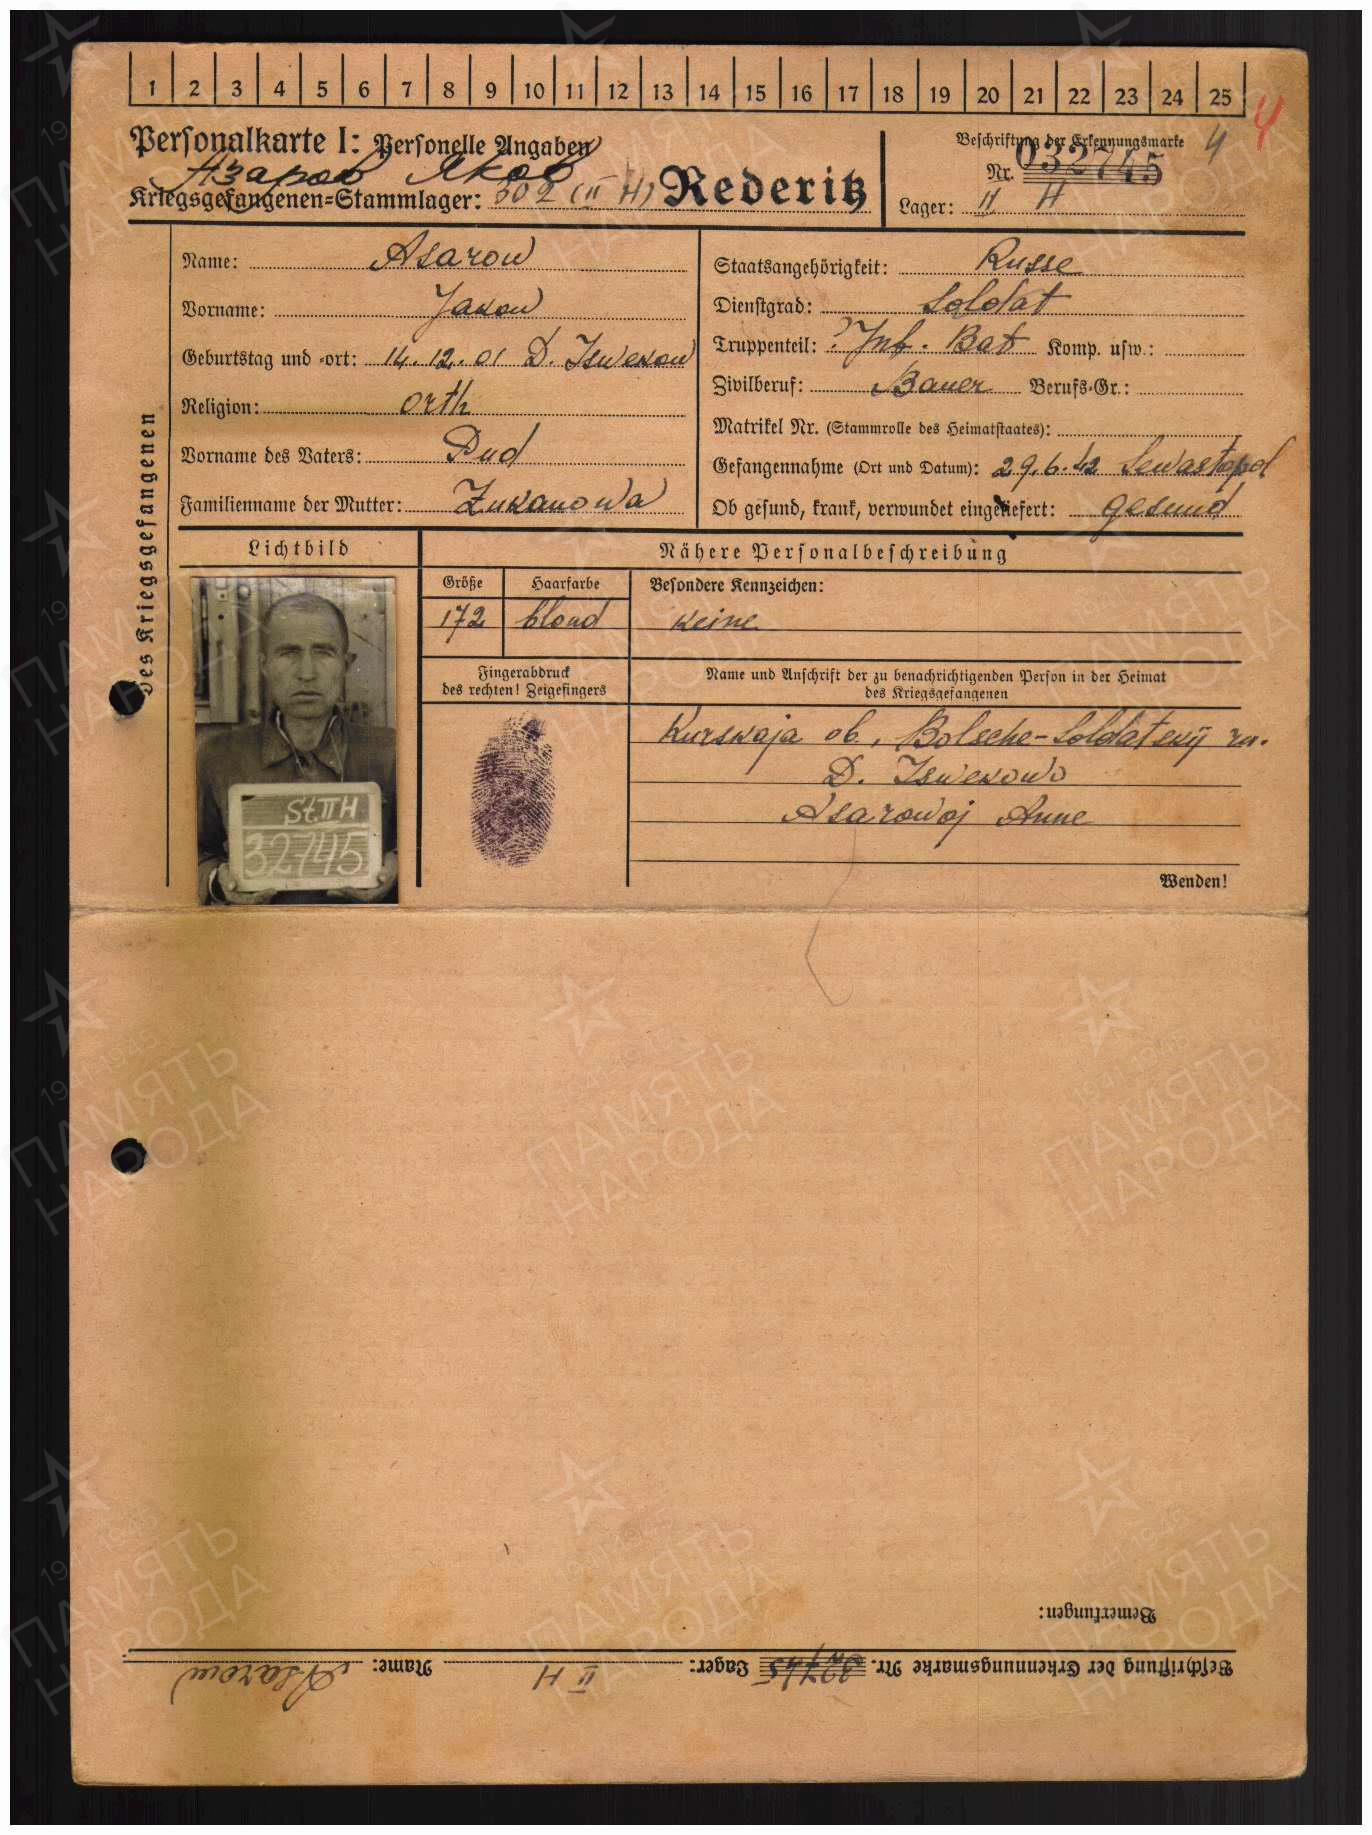 1 2 3 4 5 6 7 8 9 10 11 12 13 14 15 16 17 18 19 20 21 22 23 24 25
4 4
Personalkarte I: Personelle Angaben
Азаров Яков
Kriegsgefangenen-Stammlager: 302 (II H) Rederitz
Beschriftung der Erkennungsmarke
Nr. 032745
Lager: II H
des Kriegsgefangenen
Name: Asarow
Vorname: Jakow
Geburtstag und -ort: 14.12.01 D. Iswekow
Religion: orth
Vorname des Vaters: Pud
Familienname der Mutter: Zukanowa
Staatsangehörigkeit: Russe
Dienstgrad: Soldat
Truppenteil: ? Inf. Bat Komp. usw.:
Zivilberuf: Bauer Berufs-Gr.:
Matrikel Nr. (Stammrolle des Heimatstaates):
Gefangennahme (Ort und Datum): 29.6.42 Sewastopol
Ob gesund, krank, verwundet eingeliefert: gesund
Lichtbild
St. II H
32745
Nähere Personalbeschreibung
Größe
172
Haarfarbe
blond
Besondere Kennzeichen:
keine
Fingerabdruck
des rechten! Zeigefingers
Name und Anschrift der zu benachrichtigenden Person in der Heimat
des Kriegsgefangenen
Kurskaja ob., Bolsche-Soldatskij ra.
D. Iswekowo
Asarowoj Anne
Wenden!
Bemerkungen:
Beschriftung der Erkennungsmarke Nr. 32745 Lager: II H Name: Asarow
1941-1945
ПАМЯТЬ
НАРОДА